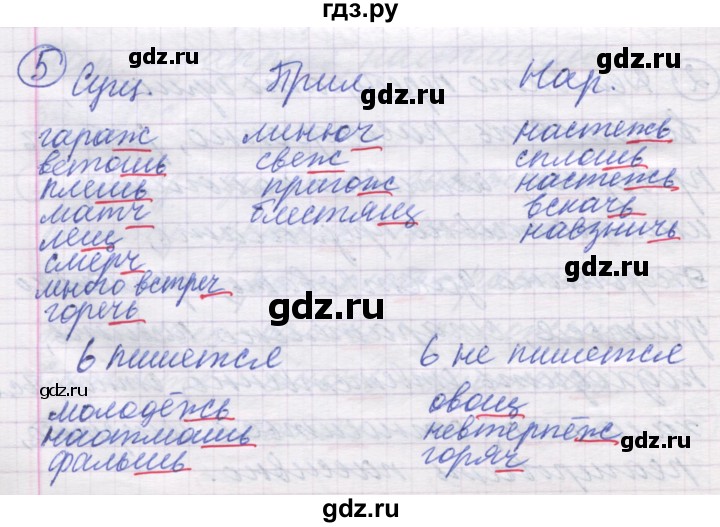 гдз.ру
5
Сущ. Прил. Нар.
гараж минюч настежь
ветошь свеж сплошь
плешь пригож настежь
матч блестящ вскачь
лещ навзничь
смерч
много встреч
горечь
ь пишется ь не пишется
молодёжь овощ
наотмашь невтерпёж
фальшь горяч
gdz.ru
gdz.ru
gdz.ru
gdz.ru
gdz.ru
gdz.ru
gdz.ru
gdz.ru
gdz.ru
gdz.ru